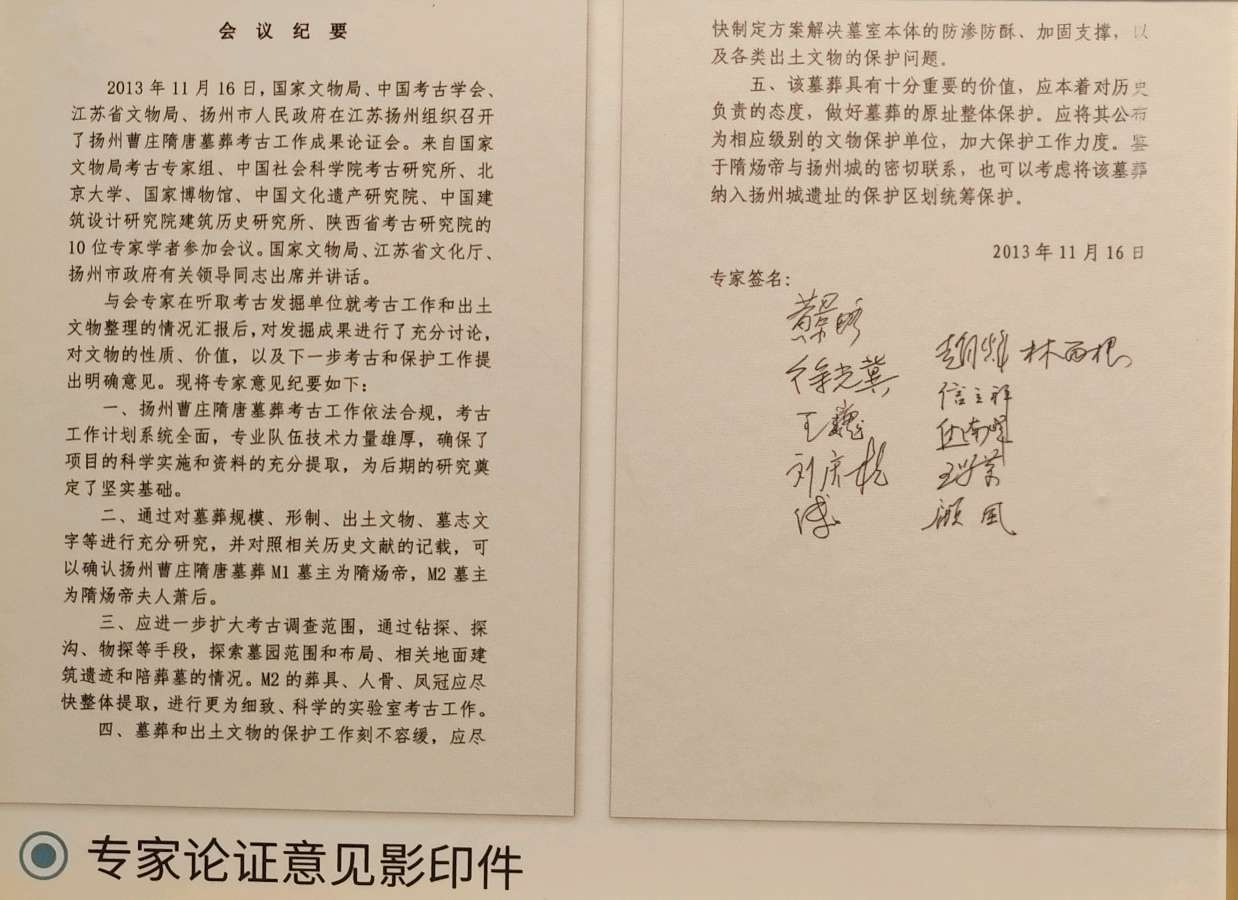 会议纪要
2013年11月16日，国家文物局、中国考古学会、
江苏省文物局、扬州市人民政府在江苏扬州组织召开
了扬州曹庄隋唐墓葬考古工作成果论证会。来自国家
文物局考古专家组、中国社会科学院考古研究所、北
京大学、国家博物馆、中国文化遗产研究院、中国建
筑设计研究院建筑历史研究所、陕西省考古研究院的
10位专家学者参加会议。国家文物局、江苏省文化厅、
扬州市政府有关领导同志出席并讲话。
与会专家在听取考古发掘单位就考古工作和出土
文物整理的情况汇报后，对发掘成果进行了充分讨论，
对文物的性质、价值，以及下一步考古和保护工作提
出明确意见。现将专家意见纪要如下：
一、扬州曹庄隋唐墓葬考古工作依法合规，考古
工作计划系统全面，专业队伍技术力量雄厚，确保了
项目的科学实施和资料的充分提取，为后期的研究奠
定了坚实基础。
二、通过对墓葬规模、形制、出土文物、墓志文
字等进行充分研究，并对照相关历史文献的记载，可
以确认扬州曹庄隋唐墓葬M1墓主为隋炀帝，M2墓主
为隋炀帝夫人萧后。
三、应进一步扩大考古调查范围，通过钻探、探
沟、物探等手段，探索墓园范围和布局、相关地面建
筑遗迹和陪葬墓的情况。M2的葬具、人骨、凤冠应尽
快整体提取，进行更为细致、科学的实验室考古工作。
四、墓葬和出土文物的保护工作刻不容缓，应尽
快制定方案解决墓室本体的防渗防酥、加固支撑，以
及各类出土文物的保护问题。
五、该墓葬具有十分重要的价值，应本着对历史
负责的态度，做好墓葬的原址整体保护。应将其公布
为相应级别的文物保护单位，加大保护工作力度。鉴
于隋炀帝与扬州城的密切联系，也可以考虑将该墓葬
纳入扬州城遗址的保护区划统筹保护。
2013年11月16日
专家签名：
黄景略
徐光冀
王巍
刘庆柱
林留根
信立祥
顾风
专家论证意见影印件